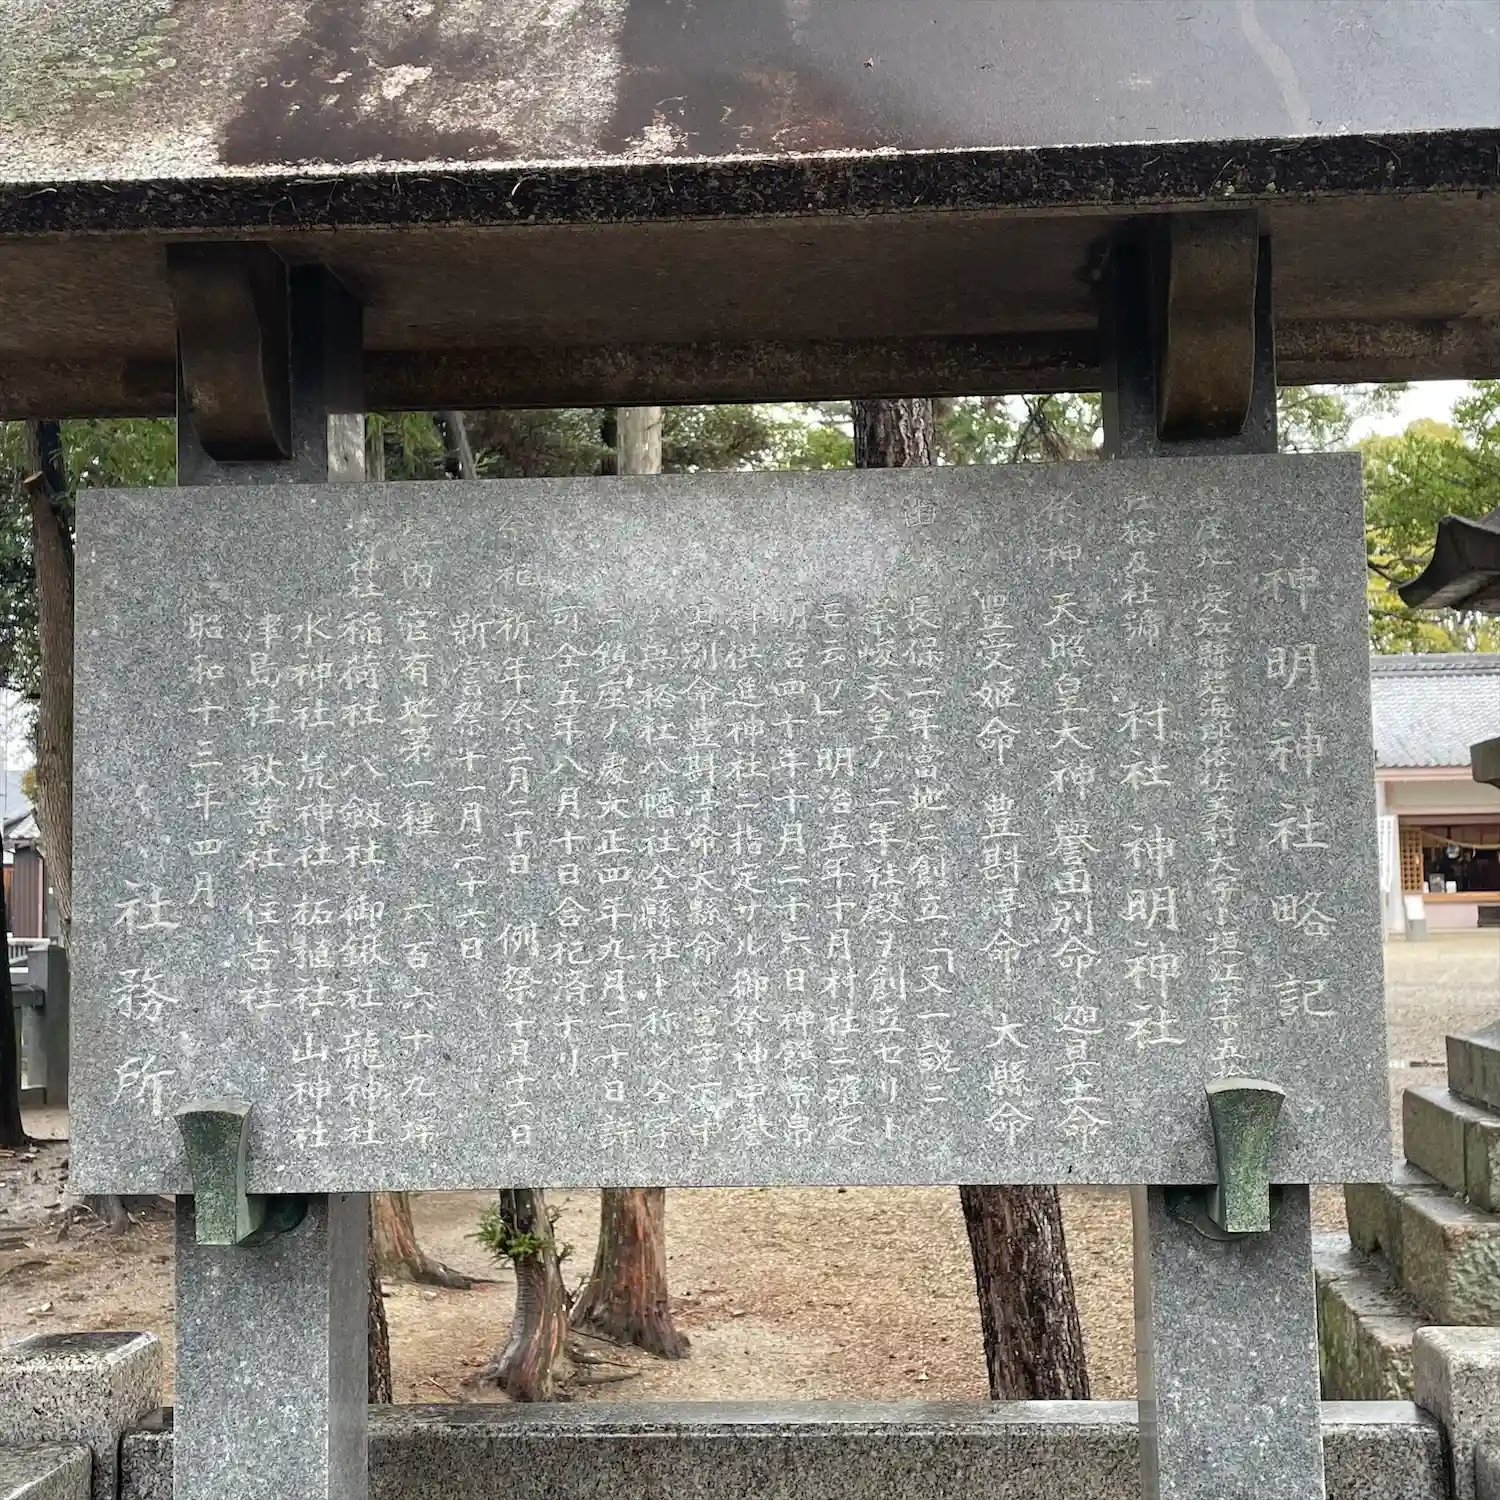 神明神社略記
鎮座地 愛知縣碧海郡依佐美村大字小垣江字下五
社格及社號 村社 神明神社
祭神 天照皇大神 譽田別命 迦具土命
豊受姫命 豊斟渟命 大縣命
由 長保二年當地ニ創立「又一説ニ
崇峻天皇ノ二年社殿ヲ創立セリト
モ云フ」明治五年十月村社ニ確定
明治四十年十月二十六日神饌幣帛
料供進神社ニ指定サル御祭神中譽
田別命豊斟渟命大縣命ハ 字下
八幡社仝縣社ト称シ仝字
ニ鎮座ノ處大正四年九月二十日許
可仝五年八月十日合祀済ナリ
祭祀 祈年祭二月二十日 例祭十月十六日
新嘗祭十一月二十六日
境内 官有地第一種 六百六十九坪
神社 稲荷社 八劔社 御鍬社 龍神社
水神社 荒神社 社 山神社
津島社 秋葉社 住吉社
昭和十三年四月
社務所